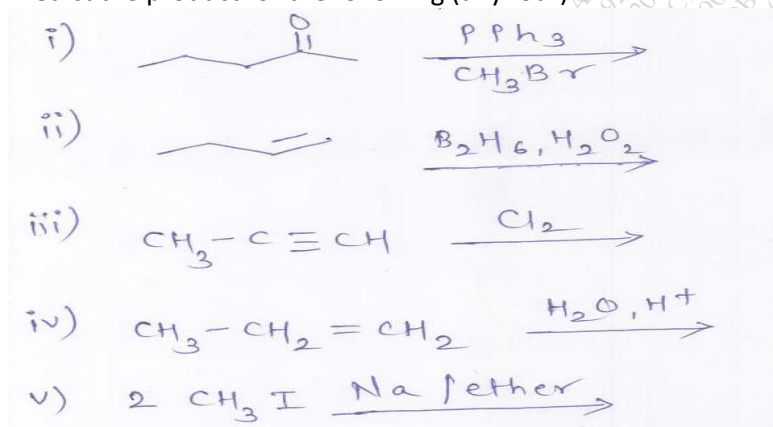 i) O PPh3
CH3Br
ii) B2H6, H2O2
iii) CH3-C≡CH Cl2
iv) CH3-CH2=CH2 H2O, H+
v) 2 CH3I Na/ether